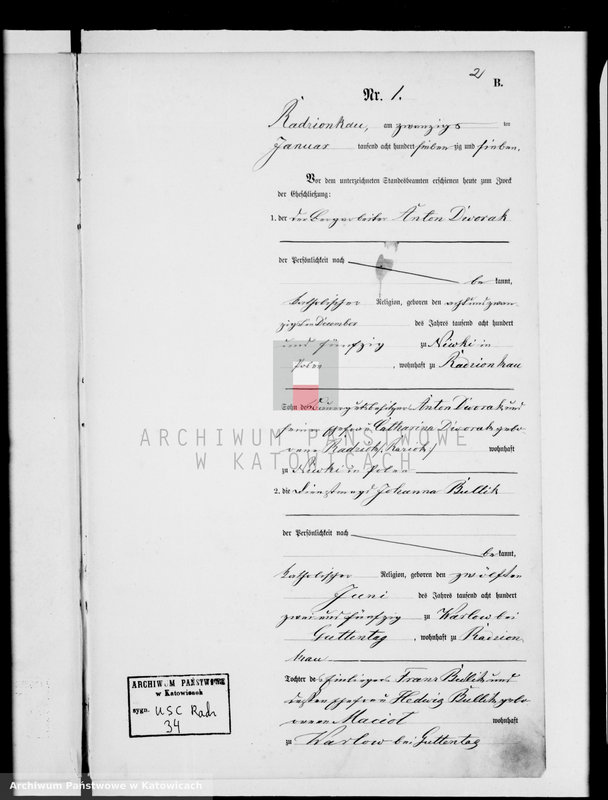 2
B.
Nr. 1.
Radzionkau, am zwanzigs ten
Januar tausend acht hundert siebenzig und sieben.
Vor dem unterzeichneten Standesbeamten erschienen heute zum Zweck
der Eheschließung:
1. der der Bergarbeiter Anton Dworak
der Persönlichkeit nach
be kannt,
katholischer Religion, geboren den acht und zwan
zigsten December des Jahres tausend acht hundert
und fünfzig zu Niwki in
Polen, wohnhaft zu Radzionkau
Sohn des Anton Dworak und
seiner Ehefrau Catharina Dworak gebo
rene wohnhaft
zu Niwki in Polen
2. die Dienstmagd Johanna Bullik
der Persönlichkeit nach
be kannt,
katholischer Religion, geboren den zwölften
Juni des Jahres tausend acht hundert
zwei und fünfzig zu Warlow bei
Guttentag, wohnhaft zu Radzion
kau
Tochter des Einliegers Franz Bullik und
dessen Ehefrau Hedwig Bullik gebo
renen Maciot wohnhaft
zu Warlow bei Guttentag
ARCHIWUM PAŃSTWOWE
W KATOWICACH
ARCHIWUM PAŃSTWOWE
w Katowicach
sygn. USC Radz
34
Archiwum Państwowe w Katowicach